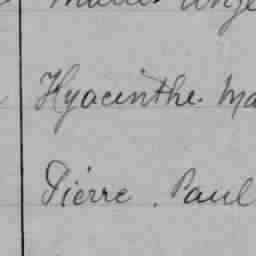 Hyacinthe. Ma
Pierre. Paul